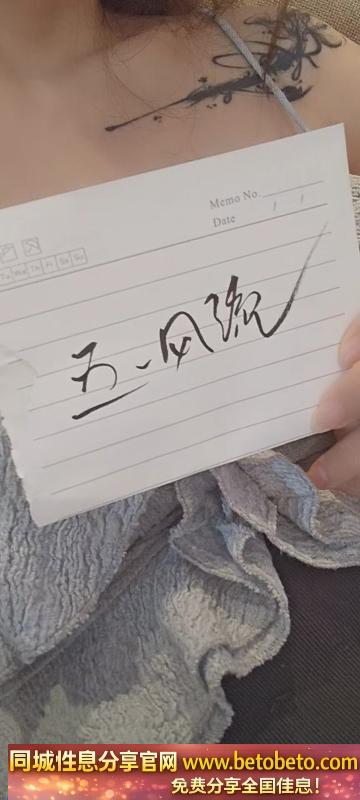 Memo No.
Date / /
Tu We Th Fr Sa Su
五一风流
同城性息分享官网 www.betobeto.com
免费分享全国佳息!